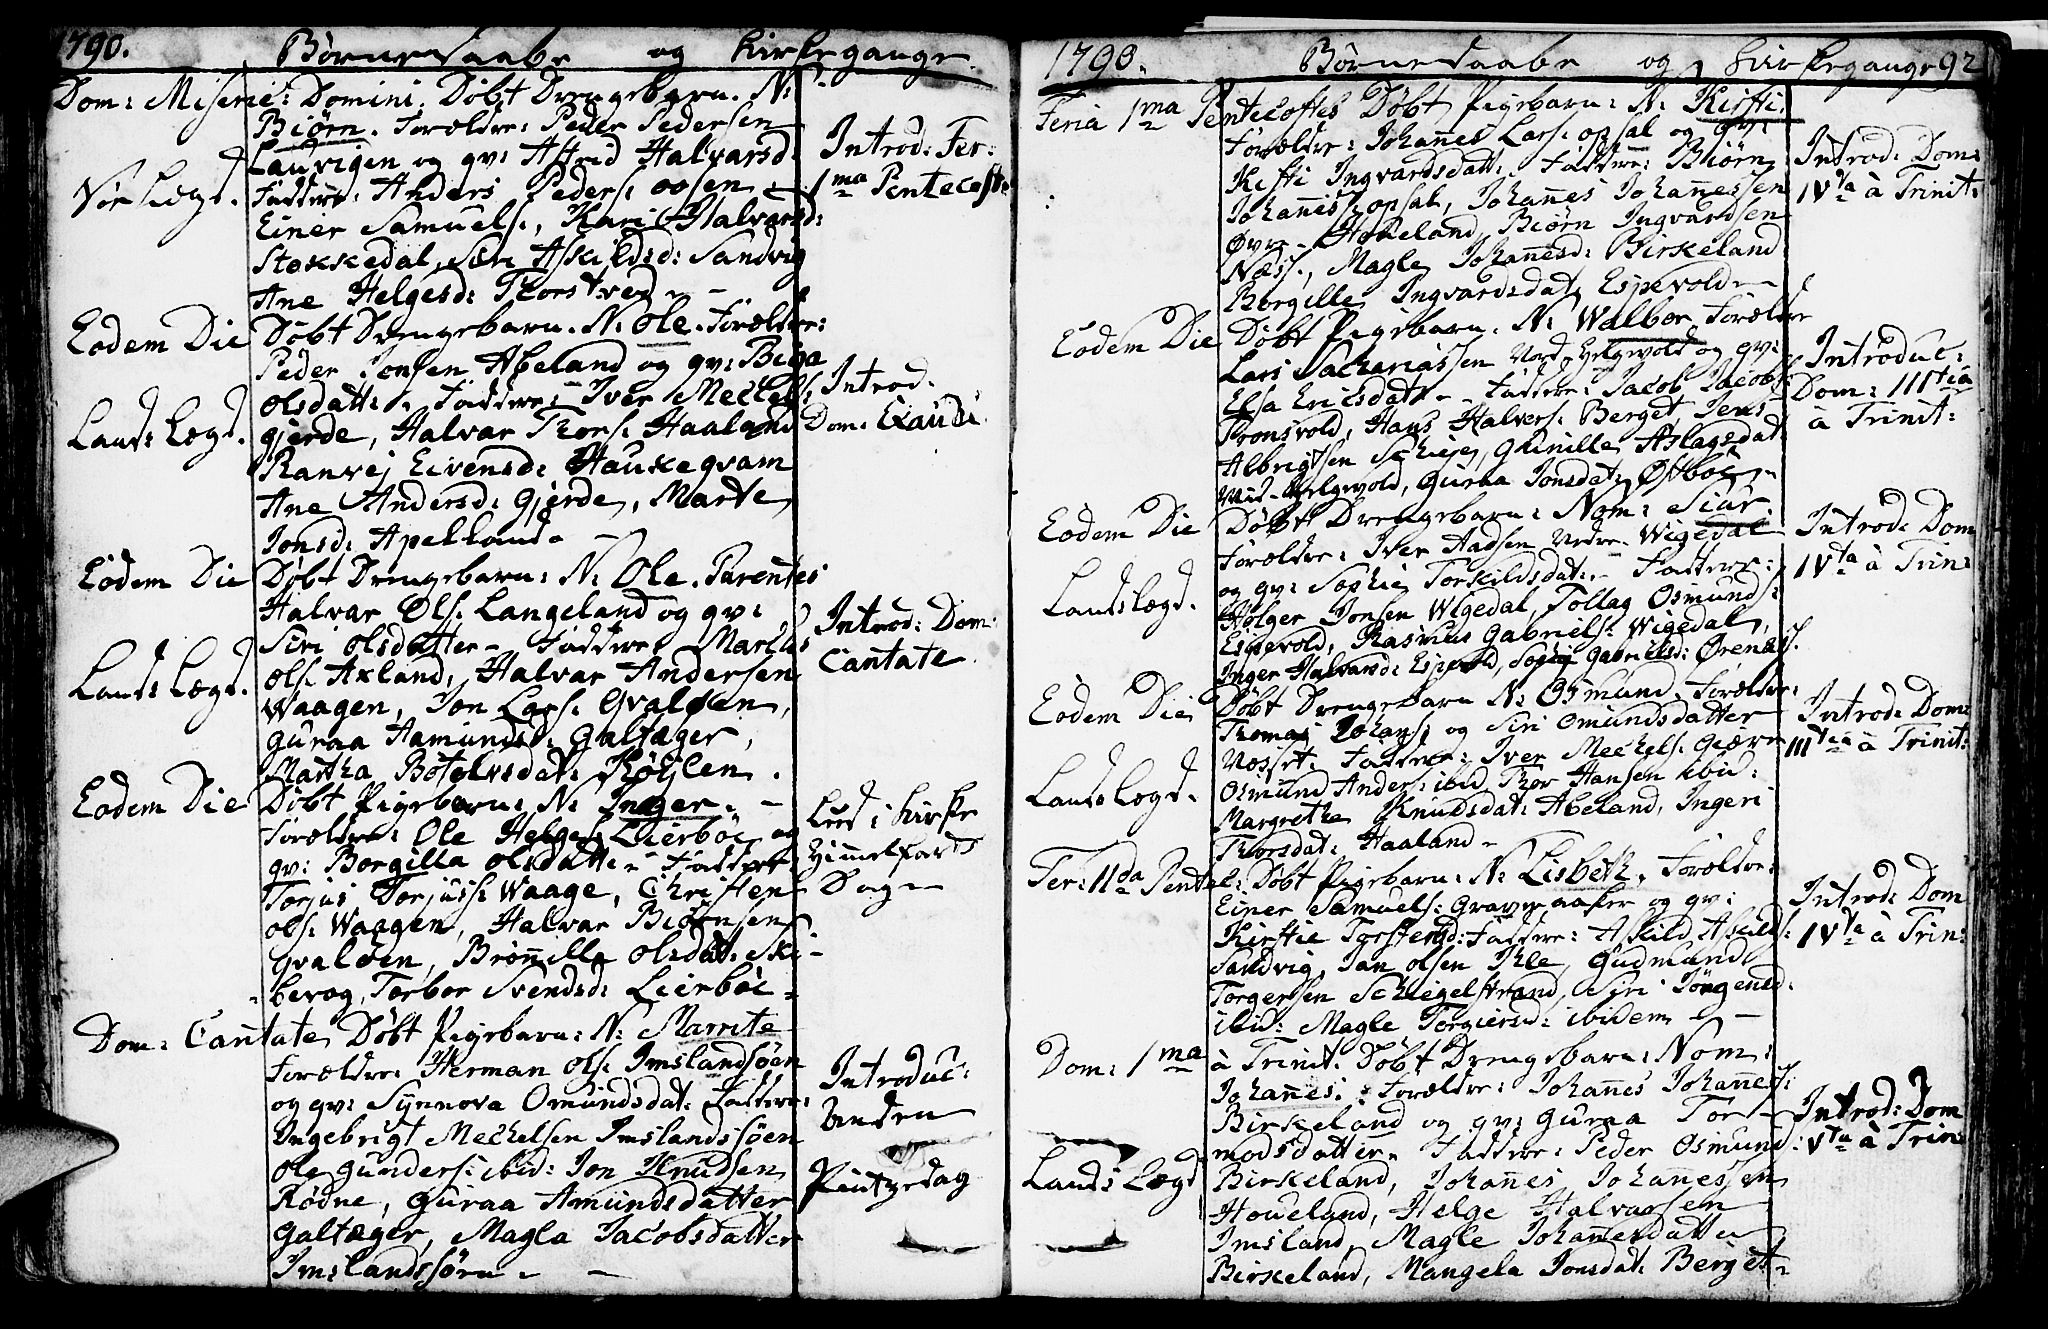 1790. Børnedaabe og Kirkegange.
Dom: Miseric: Domini. Døbt Drengebarn. N:
Biørn. Forældre: Peder Pedersen
Laurvigen og qv: Astrid Halvarsd:
Faddere: Anders Peders: oosen
Einer Samuels:, Kari Halvarsd:
Stokkedal, Siri Askildsd: Sandvig
Ane Helgesd: Thorstved
Introd: Fer:
1ma Pentecost:
Eodem Die Døbt Drengebarn. N: Ole. Forældre:
Peder Jonsen Abeland og qv: Biga
Olsdatt: Faddere: Iver Mechels:
Lands Lægd. gjerde, Halvar Thors: Haaland
Ranvej Eivensd: Haukeqvam
Ane Andersd: Gjerde, Marte
Jonsd: Apelland
Introd:
Dom: Exaudi.
Eodem Die Døbt Drengebarn: N: Ole. Parentes
Halvar Ols: Langeland og qv:
Siri Olsdatter - Faddere Marcus
Lands Lægd. Ols: Axland, Halvar Andersen
Waagen, Jon Lars: Qvaløen,
Guraa Aamundsd: Galtæger,
Martha Botelvsdat: Røylen.
Introd: Dom:
Cantate
Eodem Die Døbt Pigebarn: N: Inger.
Forældre: Ole Helges: Lierbøe og
qv: Borgilla Olsdatt: - Faddere:
Torjus Torjuss: Waage, Christen
Ols: Waagen, Halvar Biørnsen
Qvaløen, Brønnilla Olsdat: Ski-
bevog, Torbor Svendsd: Lierbøe
Leed i Kirke
Himmelfarts
Dag
Dom: Cantate Døbt Pigebarn: N: Marrite
Forældre: Herman Ols: Imslandsøen
og qv: Synnova Omundsdat: Faddere:
Ingebrigt Mechelsen Imslandssøen
Ole Gunders: ibid: Jon Knudsen
Rødne, Guraa Amundsdatter
Galtæger, Magla Jacobsdatter
Imslandssørn
Introduc:
Anden
Pintzedag
1790. Børnedaabe og Kirkegange 92
Feria 1ma Pentecostes Døbt Pigebarn: N: Kirsti.
Forældre: Johannes Lars: opsal og qv:
Kisti Ingvardsdatt: Faddere: Biørn
Johanniss: opsal, Johannes Johannessen
Øvre Hoveland, Biørn Ingvardsen
Næss, Magle Johannesd: Birkeland
Borgille Ingvardsdat: Espevold
Introd: Dom:
IVta à Trinit:
Eodem Die Døbt Pigebarn. N: Walbor Forældre
Lars Sachariassen Ned-Helgevold og qv:
Elsa Ericsdat: - Faddere: Jacob Jacobs:
Tronsvold, Hans Halvers: Berget Jens
Albrigtsen Schieje, Gunille Aslagsdat:
Helgevold, Guraa Jonsdat: Østbøe
Introduc:
Dom: IIItia
à Trinit:
Eodem Die Døbt Drengebarn: Nom: Siur.
Forældre: Iver Aadsen Nedre-Wigedal
og qv: Sophie Torkildsdat: - Faddere:
Lands Lægd. Holger Jonsen Wigedal, Tollag Osmunds:
Espevold, Rasmus Gabriels: Wigedal,
Inger Halvarsd: Espevold, Sophie Gabrielsd: Ørenæs.
Introd: Dom
IVta à Trin:
Eodem Die Døbt Drengebarn N: Osmund. Forældre:
Thomas Johans: og Siri Omundsdatter
Vosset. Faddere: Iver Mechels: Giære
Lands Lægd. Osmund Anders: ibid Thor Hansen ibid:
Margrethe Knudsdat: Abeland, Ingeri
Thorsdat: Haaland
Introd: Dom:
IIItia à Trinit:
Fer: IIda Pentec: Døbt Pigebarn: N: Lisbeth. Forældre:
Einer Samuels: Graveraaker og qv:
Kirstie Torstensd: Faddere: Askild Askilds:
Sandvig, Jan Olsen Ihle, Gudmund
Torgersen Schiegelstrand, Siri Jørgensd:
ibid: Magle Torgiersd: ibidem
Introd: Dom
IVta à Trin:
Dom: 1ma à Trinit: Døbt Drengebarn: Nom:
Johannes: Forældre: Johannes Johanness:
Birkeland og qv: Guraa Tor-
modsdatter. Faddere: Peder Osmund:
Lands Lægd Birkeland, Johannes Johannessen
Houeland, Helge Halvarsen
Imsland, Magle Johannesdatter
Birkeland, Mangela Jonsdat: Berget
Introd: Dom
Vta à Trin: